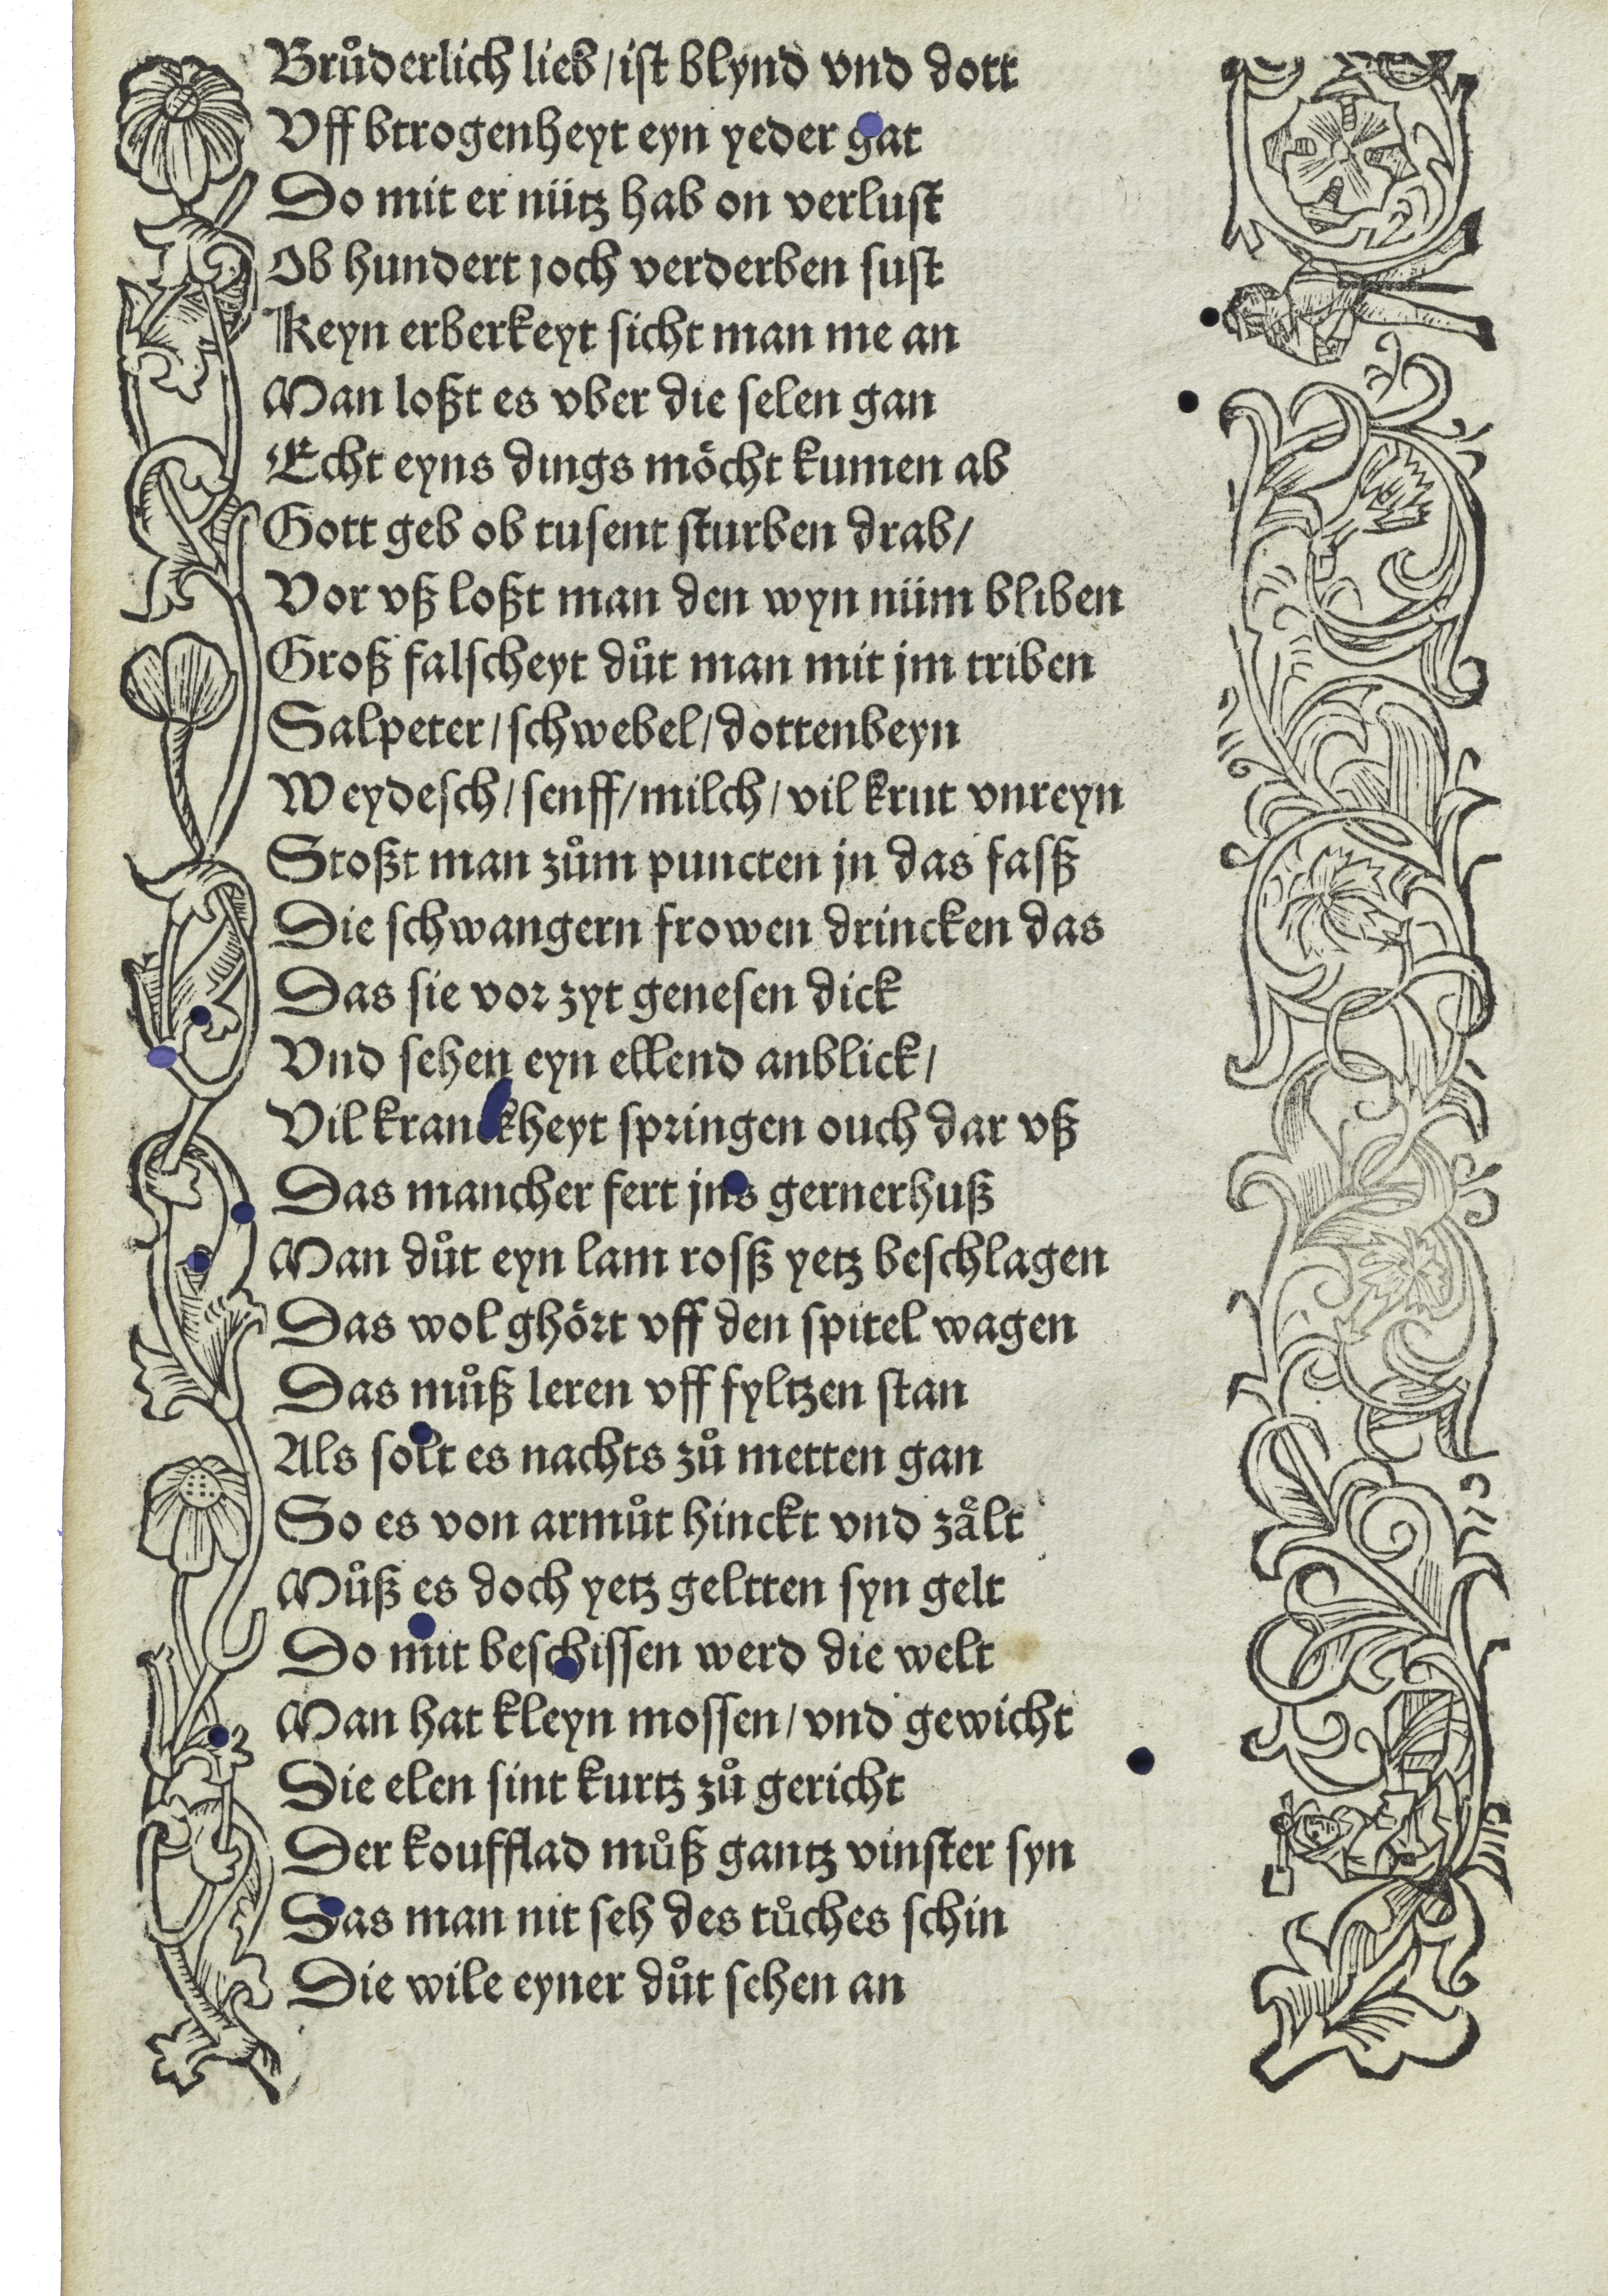 Brůderlich lieb / ist blynd vnd dott
Vff btrogenheyt eyn yeder gat
Do mit er nütz hab on verlust
Ob hundert joch verderben sust
Keyn erberkeyt sicht man me an
Man loßt es vber die selen gan
Echt eyns dings moͤcht kumen ab
Gott geb ob tusent sturben drab /
Vor vß loßt man den wyn nüm bliben
Groß falscheyt důt man mit jm triben
Salpeter / schwebel / dottenbeyn
Weydesch / senff / milch / vil krut vnreyn
Stoßt man zům puncten jn das fasß
Die schwangern frowen drincken das
Das sie vor zyt genesen dick
Vnd sehen eyn ellend anblick /
Vil kranckheyt springen ouch dar vß
Das mancher fert jns gernerhuß
Man důt eyn lam rosß yetz beschlagen
Das wol ghoͤrt vff den spitel wagen
Das můß leren vff fyltzen stan
Als solt es nachts zů metten gan
So es von armůt hinckt vnd zaͤlt
Můß es doch yetz geltten syn gelt
Do mit beschissen werd die welt
Man hat kleyn mossen / vnd gewicht
Die elen sint kurtz zů gericht
Der koufflad můß gantz vinster syn
Das man nit seh des tůches schin
Die wile eyner důt sehen an